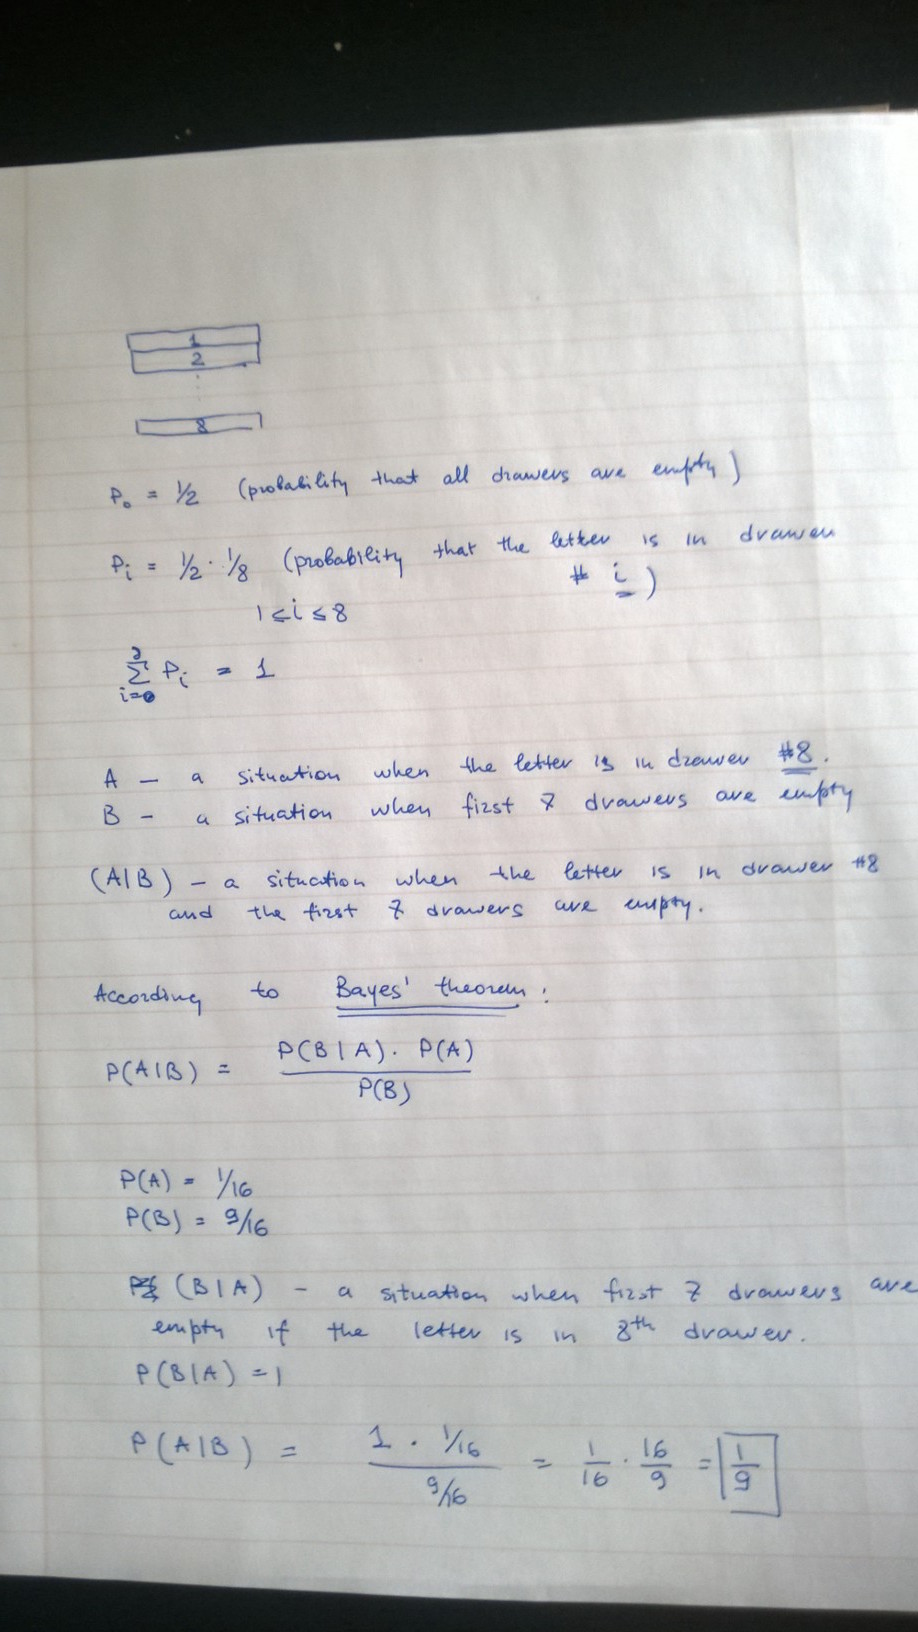 1
2
8
P₀ = 1/2 (probability that all drawers are empty)
Pᵢ = 1/2 · 1/8 (probability that the letter is in drawer
# i)
1 ≤ i ≤ 8
Σ Pᵢ = 1
i=0
A — a situation when the letter is in drawer #8.
B - a situation when first 7 drawers are empty
(A|B) - a situation when the letter is in drawer #8
and the first 7 drawers are empty.
According to Bayes' theorem:
P(A|B) = P(B|A). P(A)
P(B)
P(A) = 1/16
P(B) = 9/16
(B|A) - a situation when first 7 drawers are
empty if the letter is in 8th drawer.
P(B|A) = 1
P(A|B) = 1 · 1/16 = 1/16 · 16/9 = 1/9
9/16